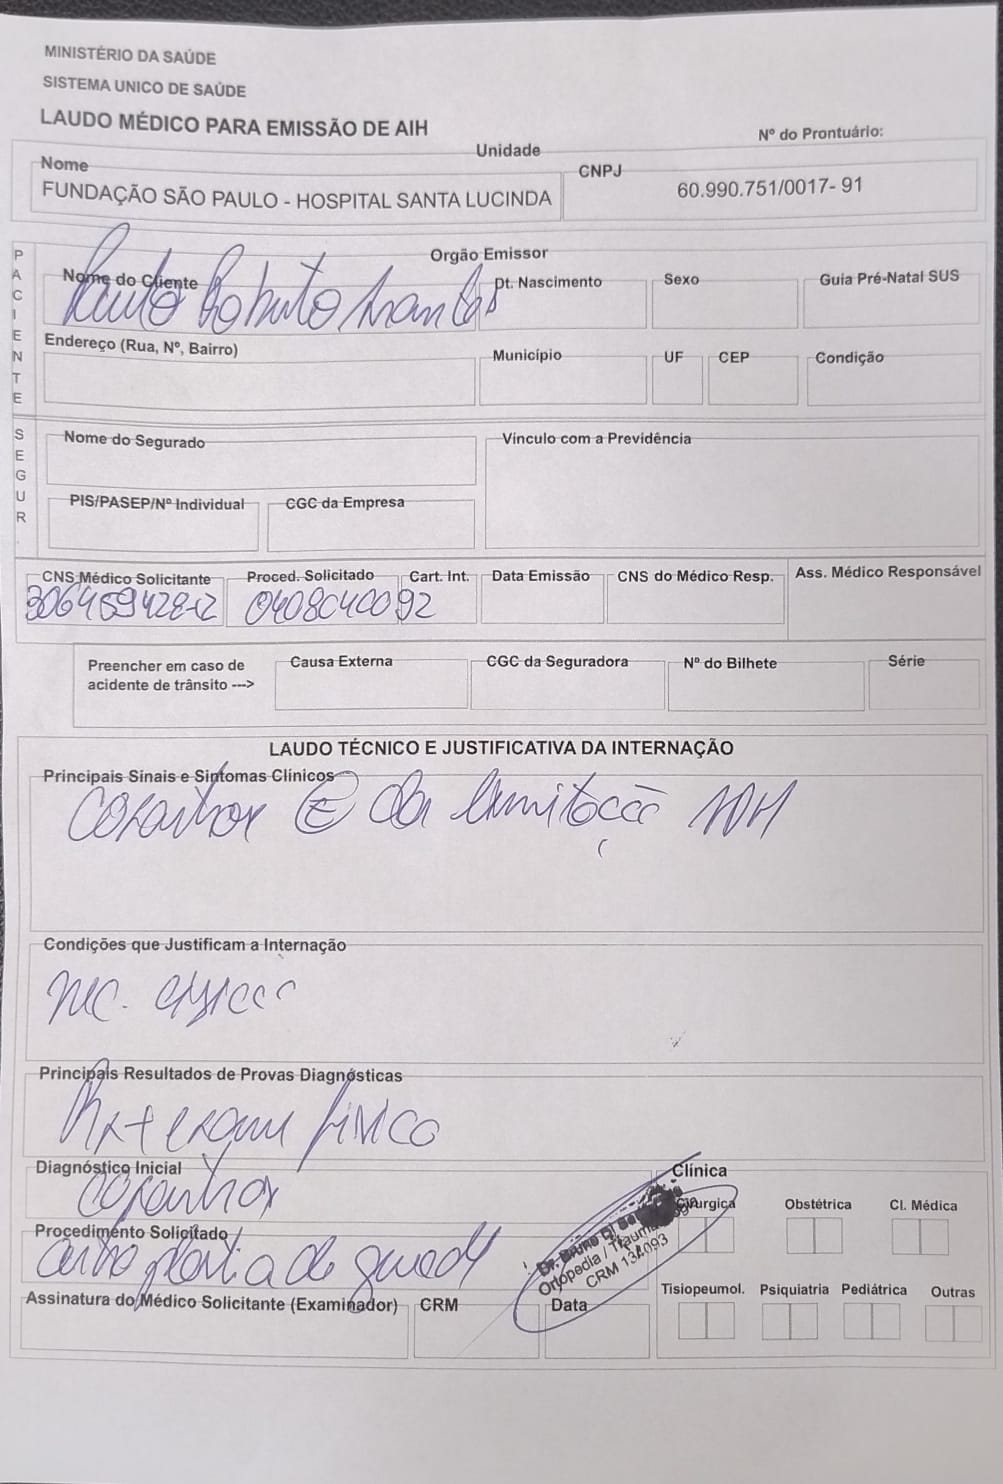 MINISTÉRIO DA SAÚDE
SISTEMA UNICO DE SAÚDE
LAUDO MÉDICO PARA EMISSÃO DE AIH
Nº do Prontuário:
Unidade
Nome
CNPJ
FUNDAÇÃO SÃO PAULO - HOSPITAL SANTA LUCINDA
60.990.751/0017- 91
PACIENTE
Orgão Emissor
Nome do Cliente
Dt. Nascimento
Sexo
Guia Pré-Natal SUS
Paulo Roberto
Endereço (Rua, Nº, Bairro)
Município
UF
CEP
Condição
SEGUR.
Nome do Segurado
Vínculo com a Previdência
PIS/PASEP/Nº Individual
CGC da Empresa
CNS Médico Solicitante
Proced. Solicitado
Cart. Int.
Data Emissão
CNS do Médico Resp.
Ass. Médico Responsável
0408040092
Preencher em caso de
acidente de trânsito --->
Causa Externa
CGC da Seguradora
Nº do Bilhete
Série
LAUDO TÉCNICO E JUSTIFICATIVA DA INTERNAÇÃO
Principais Sinais e Sintomas Clínicos
Coxartrox E dor limitação
Condições que Justificam a Internação
nec.
Principais Resultados de Provas Diagnósticas
Rx + exame físico
Diagnóstico Inicial
Coxartrox
Clínica
Cirurgica
Obstétrica
Cl. Médica
Procedimento Solicitado
artroplastia de quadril
Dr. Bruno
Ortopedia / Traumatologia
CRM
Assinatura do Médico Solicitante (Examinador)
CRM
Data
Tisiopeumol.
Psiquiatria
Pediátrica
Outras